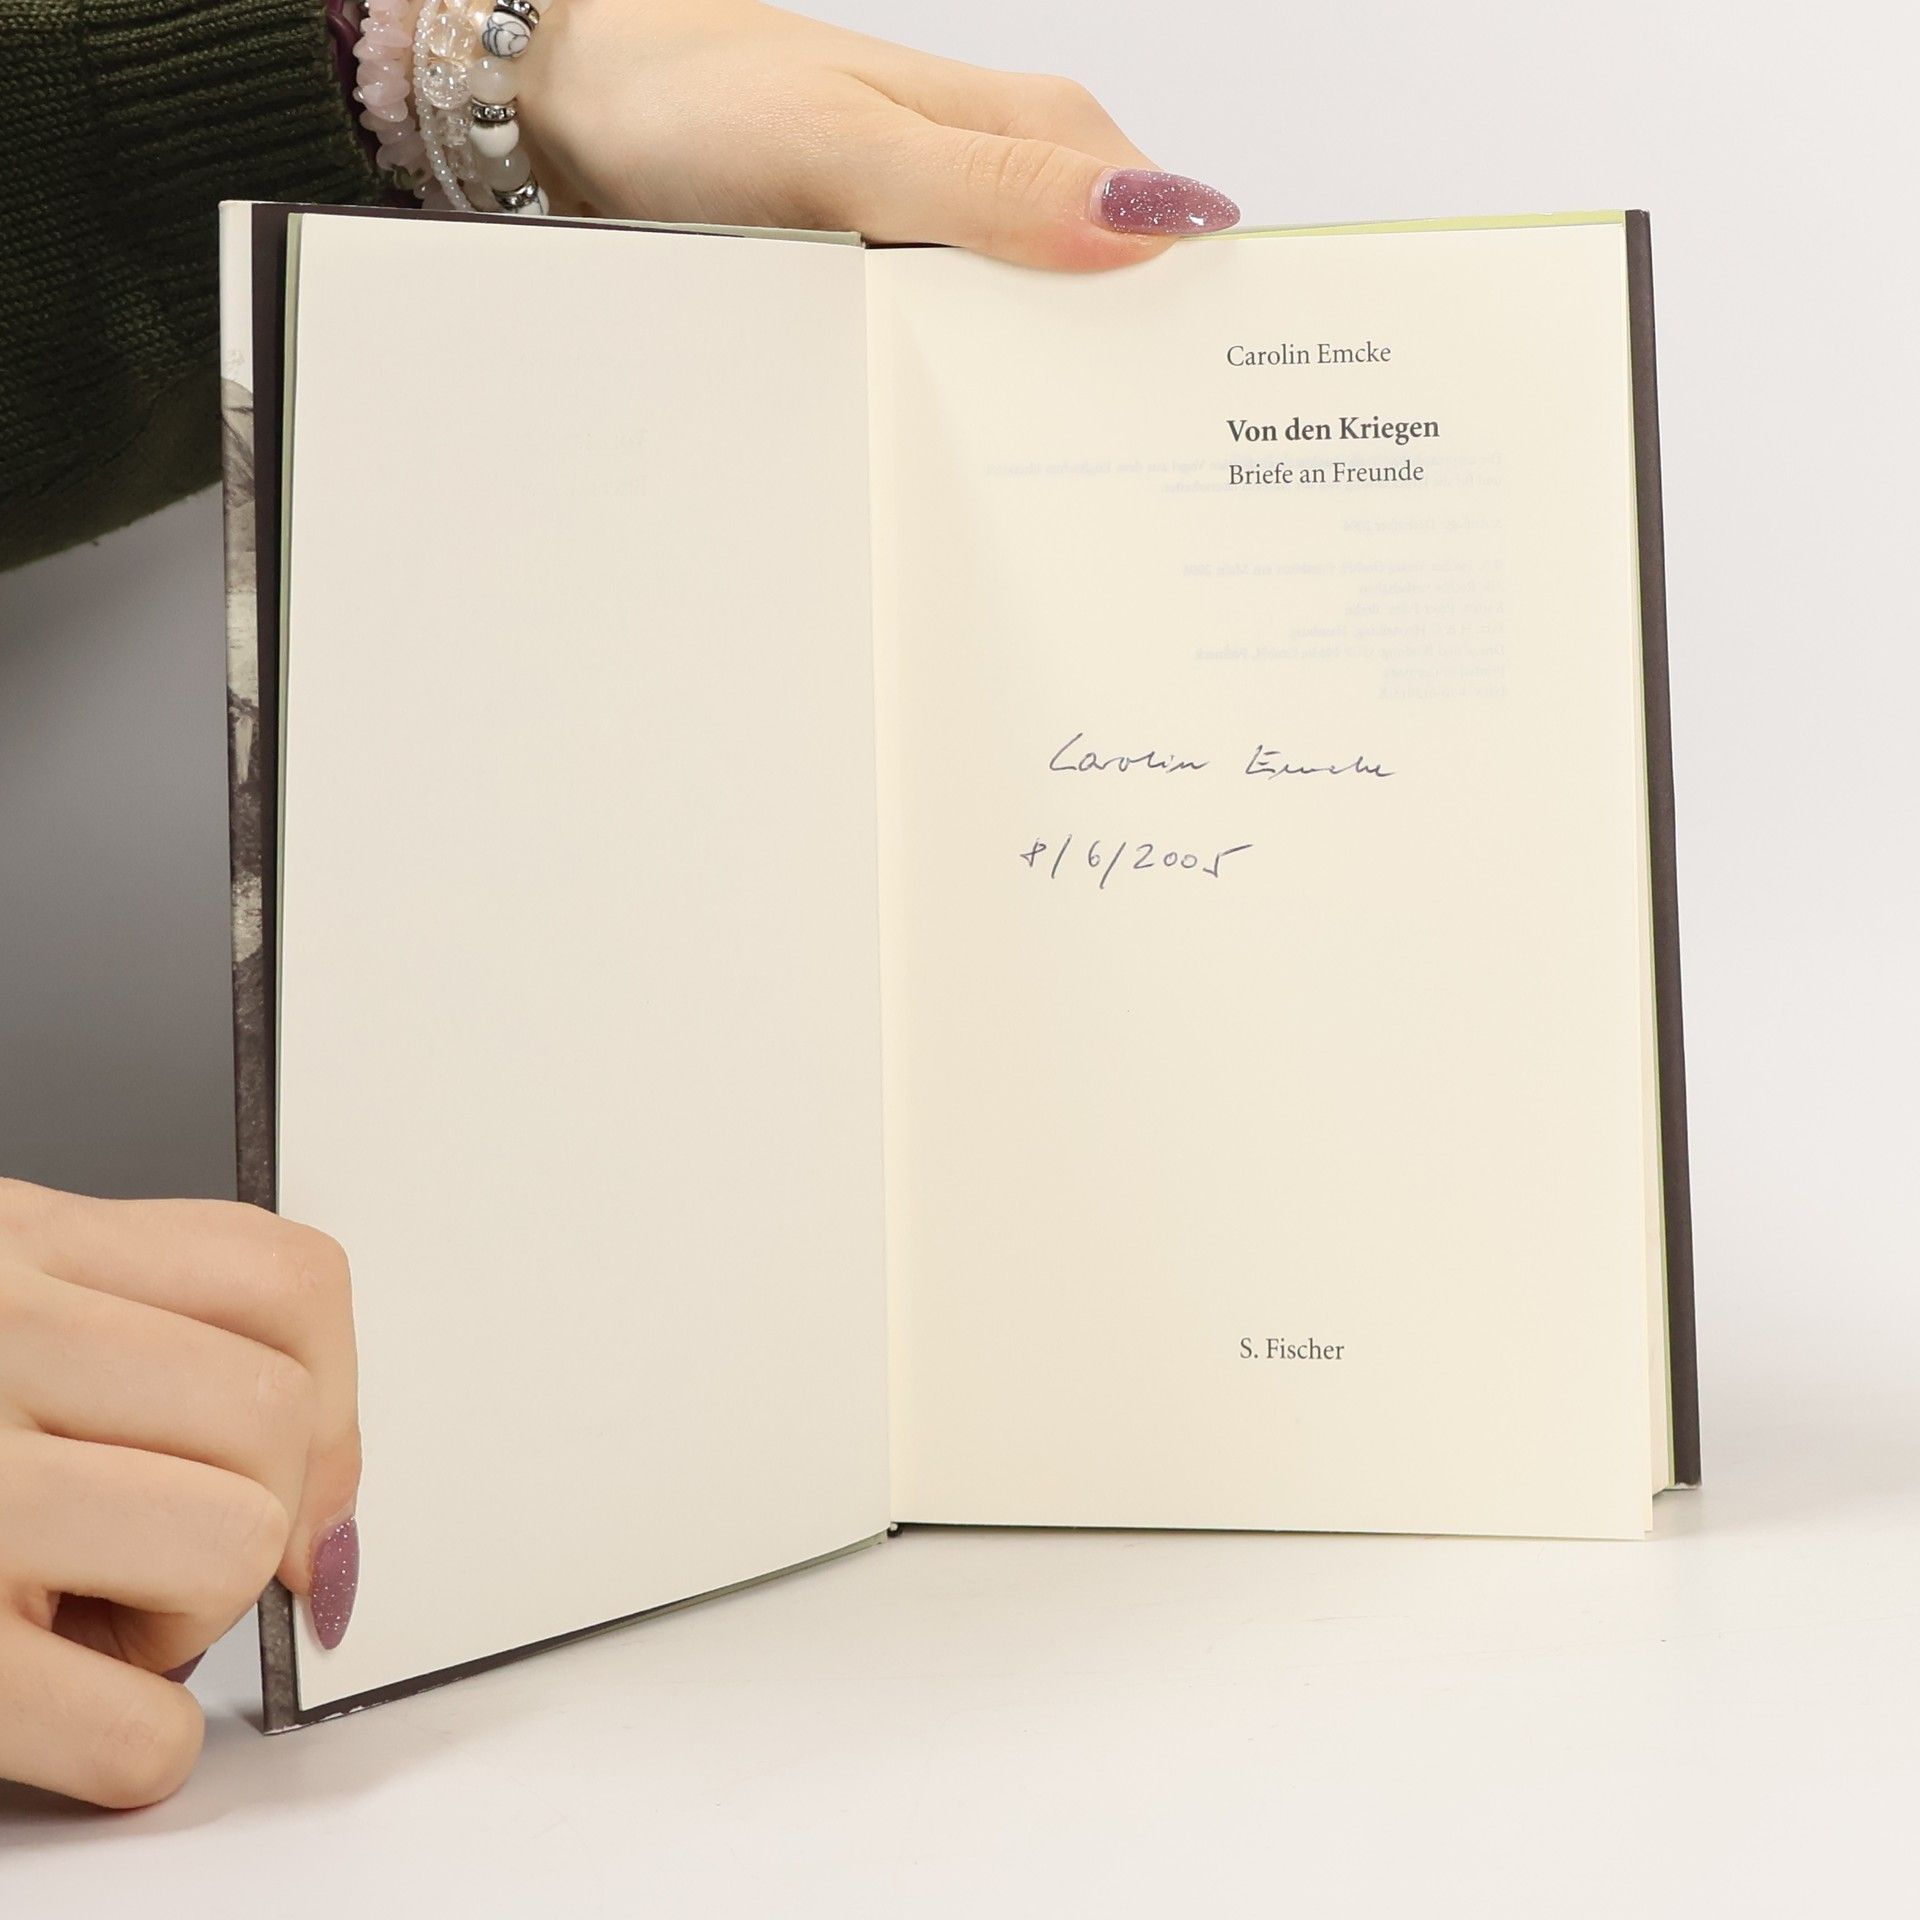 Carolin Emcke
Von den Kriegen
Briefe an Freunde
Carolin Emcke
8/6/2005
S. Fischer